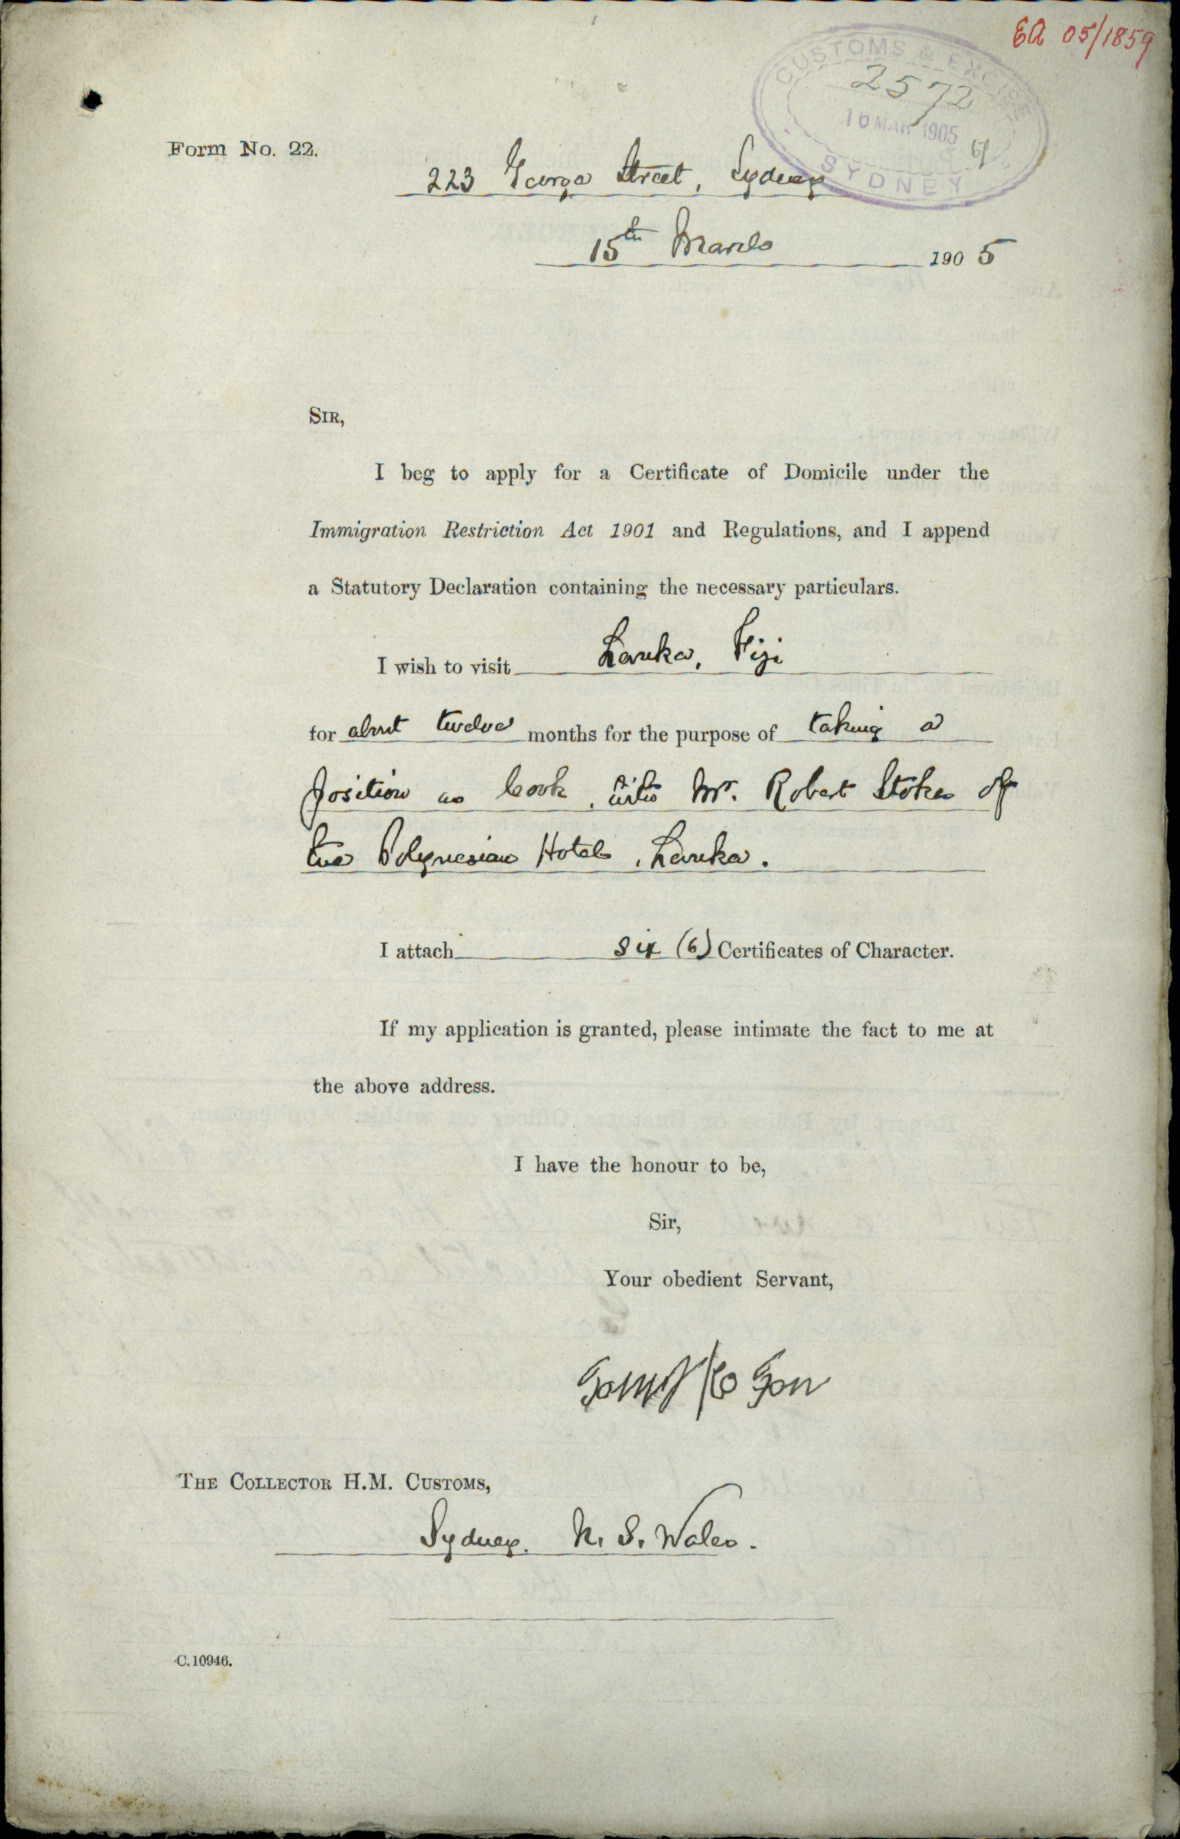 EA 05/1859
CUSTOMS & EXCISE
2572
16 MAR 1905
SYDNEY
Form No. 22.
223 George Street, Sydney
15th March 1905
SIR,
I beg to apply for a Certificate of Domicile under the
Immigration Restriction Act 1901 and Regulations, and I append
a Statutory Declaration containing the necessary particulars.
I wish to visit Levuka, Fiji
for about twelve months for the purpose of taking a
position as Cook, with Mr. Robert Stokes of
the Polynesian Hotel, Levuka.
I attach six (6) Certificates of Character.
If my application is granted, please intimate the fact to me at
the above address.
I have the honour to be,
Sir,
Your obedient Servant,
THE COLLECTOR H.M. CUSTOMS,
Sydney. N. S. Wales.
C.10946.